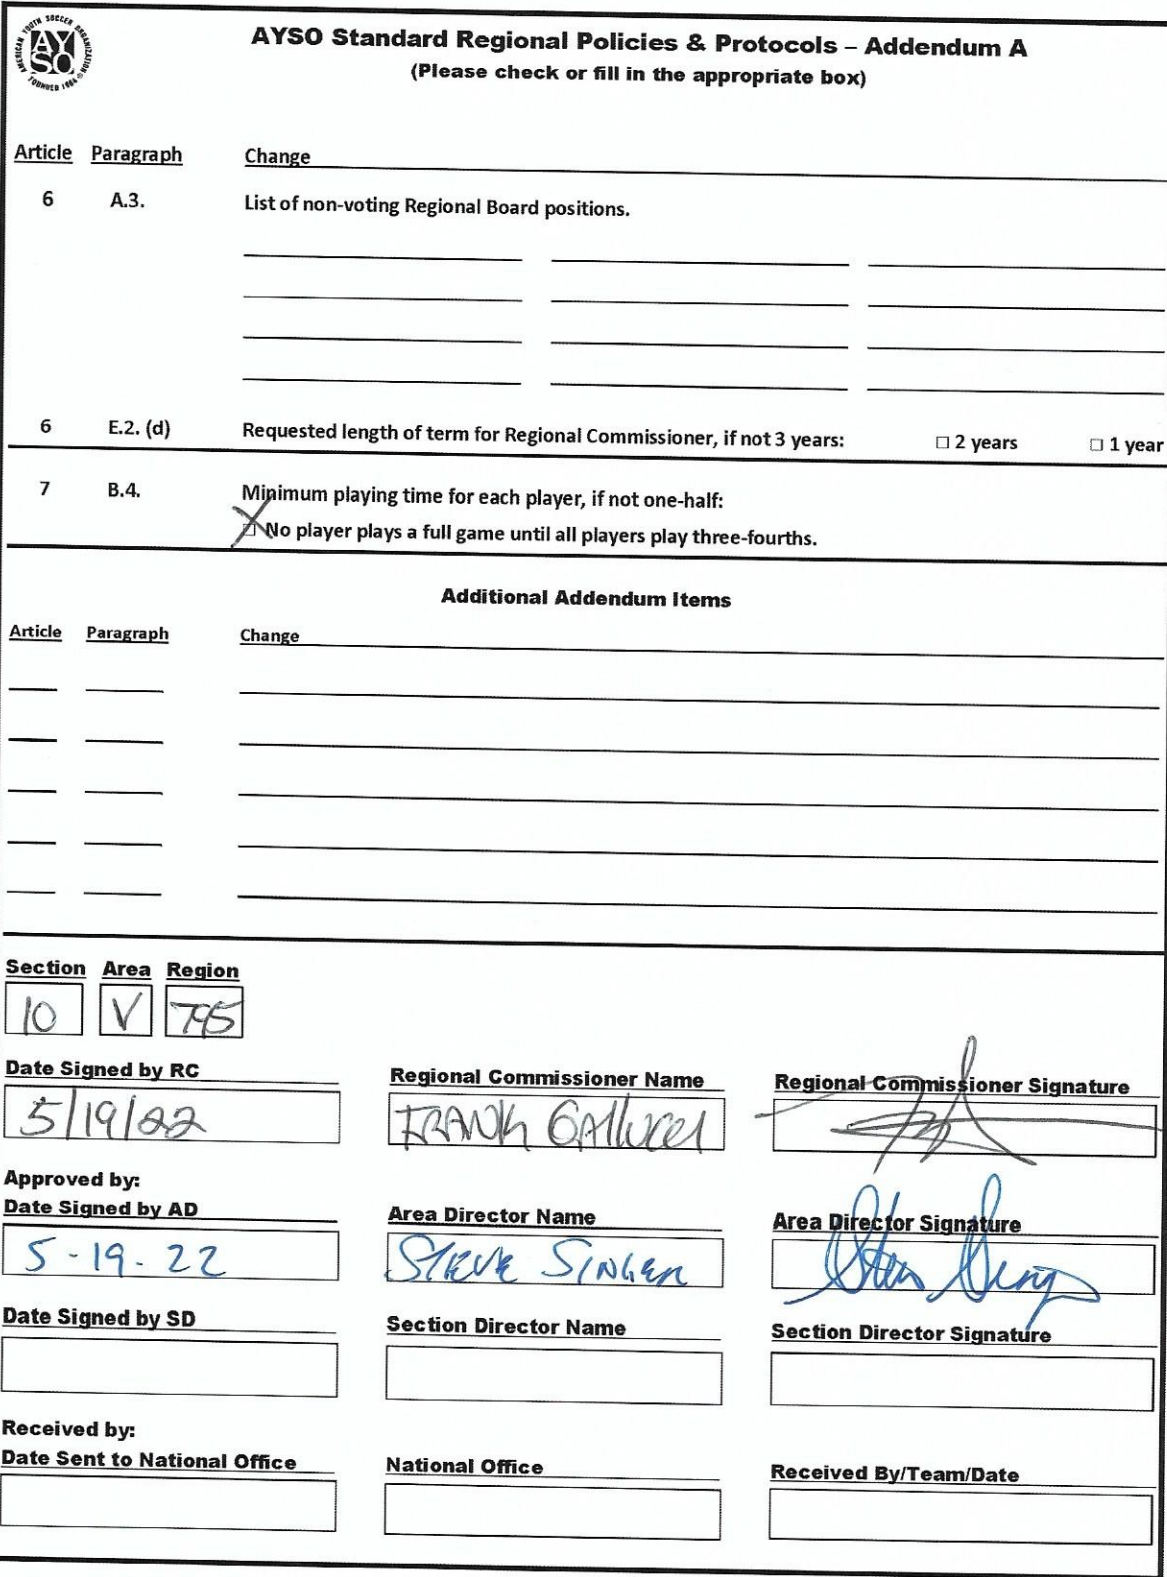 AMERICAN YOUTH SOCCER ORGANIZATION ®
AYSO
FOUNDED 1964
AYSO Standard Regional Policies & Protocols – Addendum A
(Please check or fill in the appropriate box)
Article Paragraph Change
6 A.3. List of non-voting Regional Board positions.
6 E.2. (d) Requested length of term for Regional Commissioner, if not 3 years: □ 2 years □ 1 year
7 B.4. Minimum playing time for each player, if not one-half:
X No player plays a full game until all players play three-fourths.
Additional Addendum Items
Article Paragraph Change
Section Area Region
10 V 795
Date Signed by RC Regional Commissioner Name Regional Commissioner Signature
5/19/22 FRANK GAllucci
Approved by:
Date Signed by AD Area Director Name Area Director Signature
5-19-22 STEVE SINGER Steve Singer
Date Signed by SD Section Director Name Section Director Signature
Received by:
Date Sent to National Office National Office Received By/Team/Date